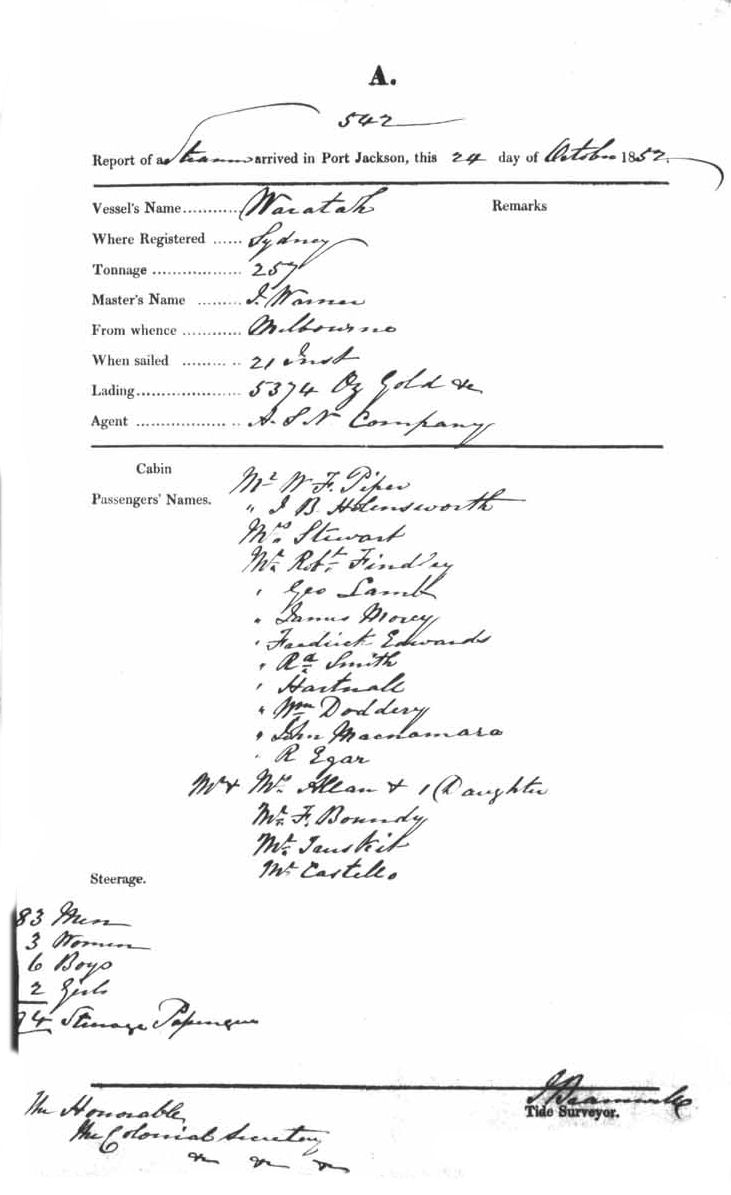 A.
542
Report of a Steamer arrived in Port Jackson, this 24 day of October 1852.
Vessel's Name........... Waratah Remarks
Where Registered ...... Sydney
Tonnage .................. 257
Master's Name ......... J. Warner
From whence ............ Melbourne
When sailed ......... .. 21 Inst
Lading..................... 5374 Oz Gold &c
Agent .................. .. A. S N Company
Cabin
Passengers' Names.
Mr W F. Piper
" J B Holensworth
Mrs Stewart
Mr Robt Findley
" Geo Lamb
" James Morey
" Fredrick Edwards
" Rd Smith
" Hartnall
" Wm Doddery
" John Macnamara
" R Egar
Mr & Mrs Allan & 1 Daughter
Mr F. Boundy
Mr
Mr Castello
Steerage.
83 Men
3 Women
6 Boys
2 Girls
94 Steerage Passengers
Tide Surveyor.
The Honorable
The Colonial Secretary
&c &c &c